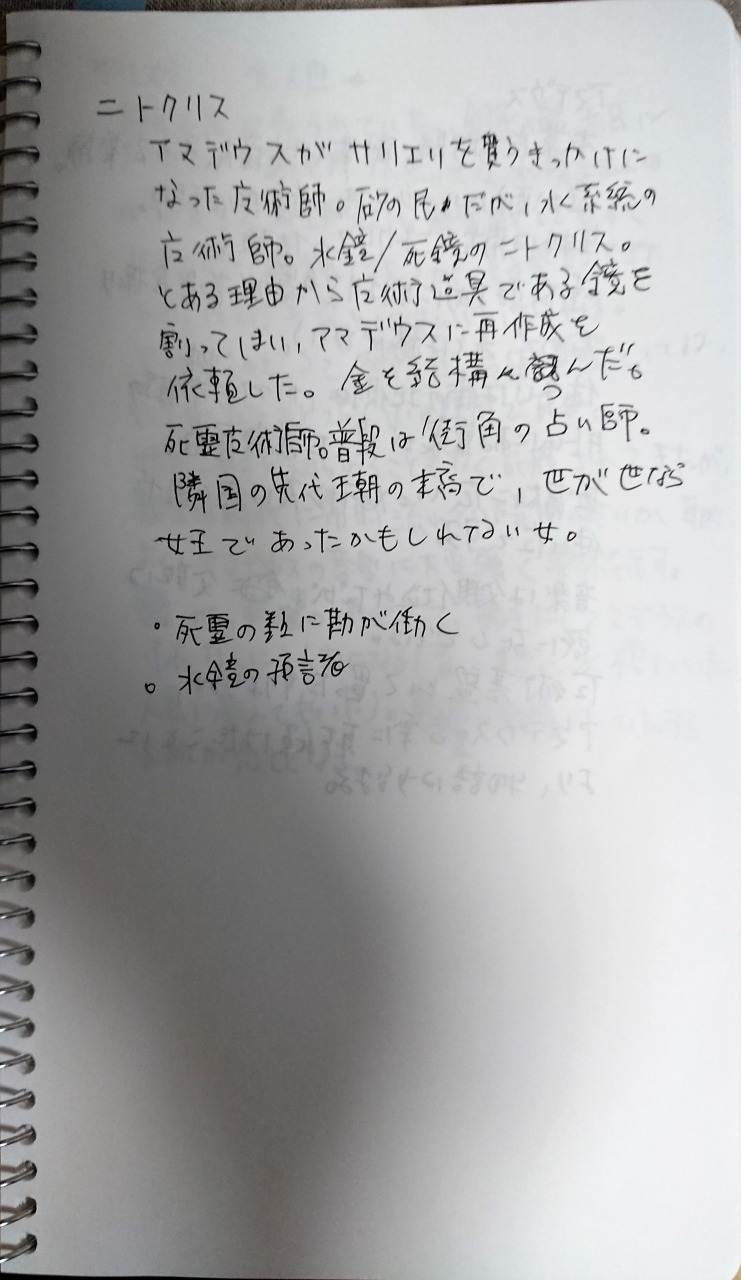 ニトクリス
アマデウスがサリエリを貰うきっかけに
なった広術師。砂の民だが、水系統の
広術師。水鏡/死鏡のニトクリス。
とある理由から広術道具である鏡を
割ってしまい、アマデウスに再作成を
依頼した。金を結構つんだ。
死霊広術師。普段は街角の占い師。
隣国の先代王朝の末裔で、世が世なら
女王であったかもしれない女。
・死霊の数に勘が働く
。水鏡の預言者